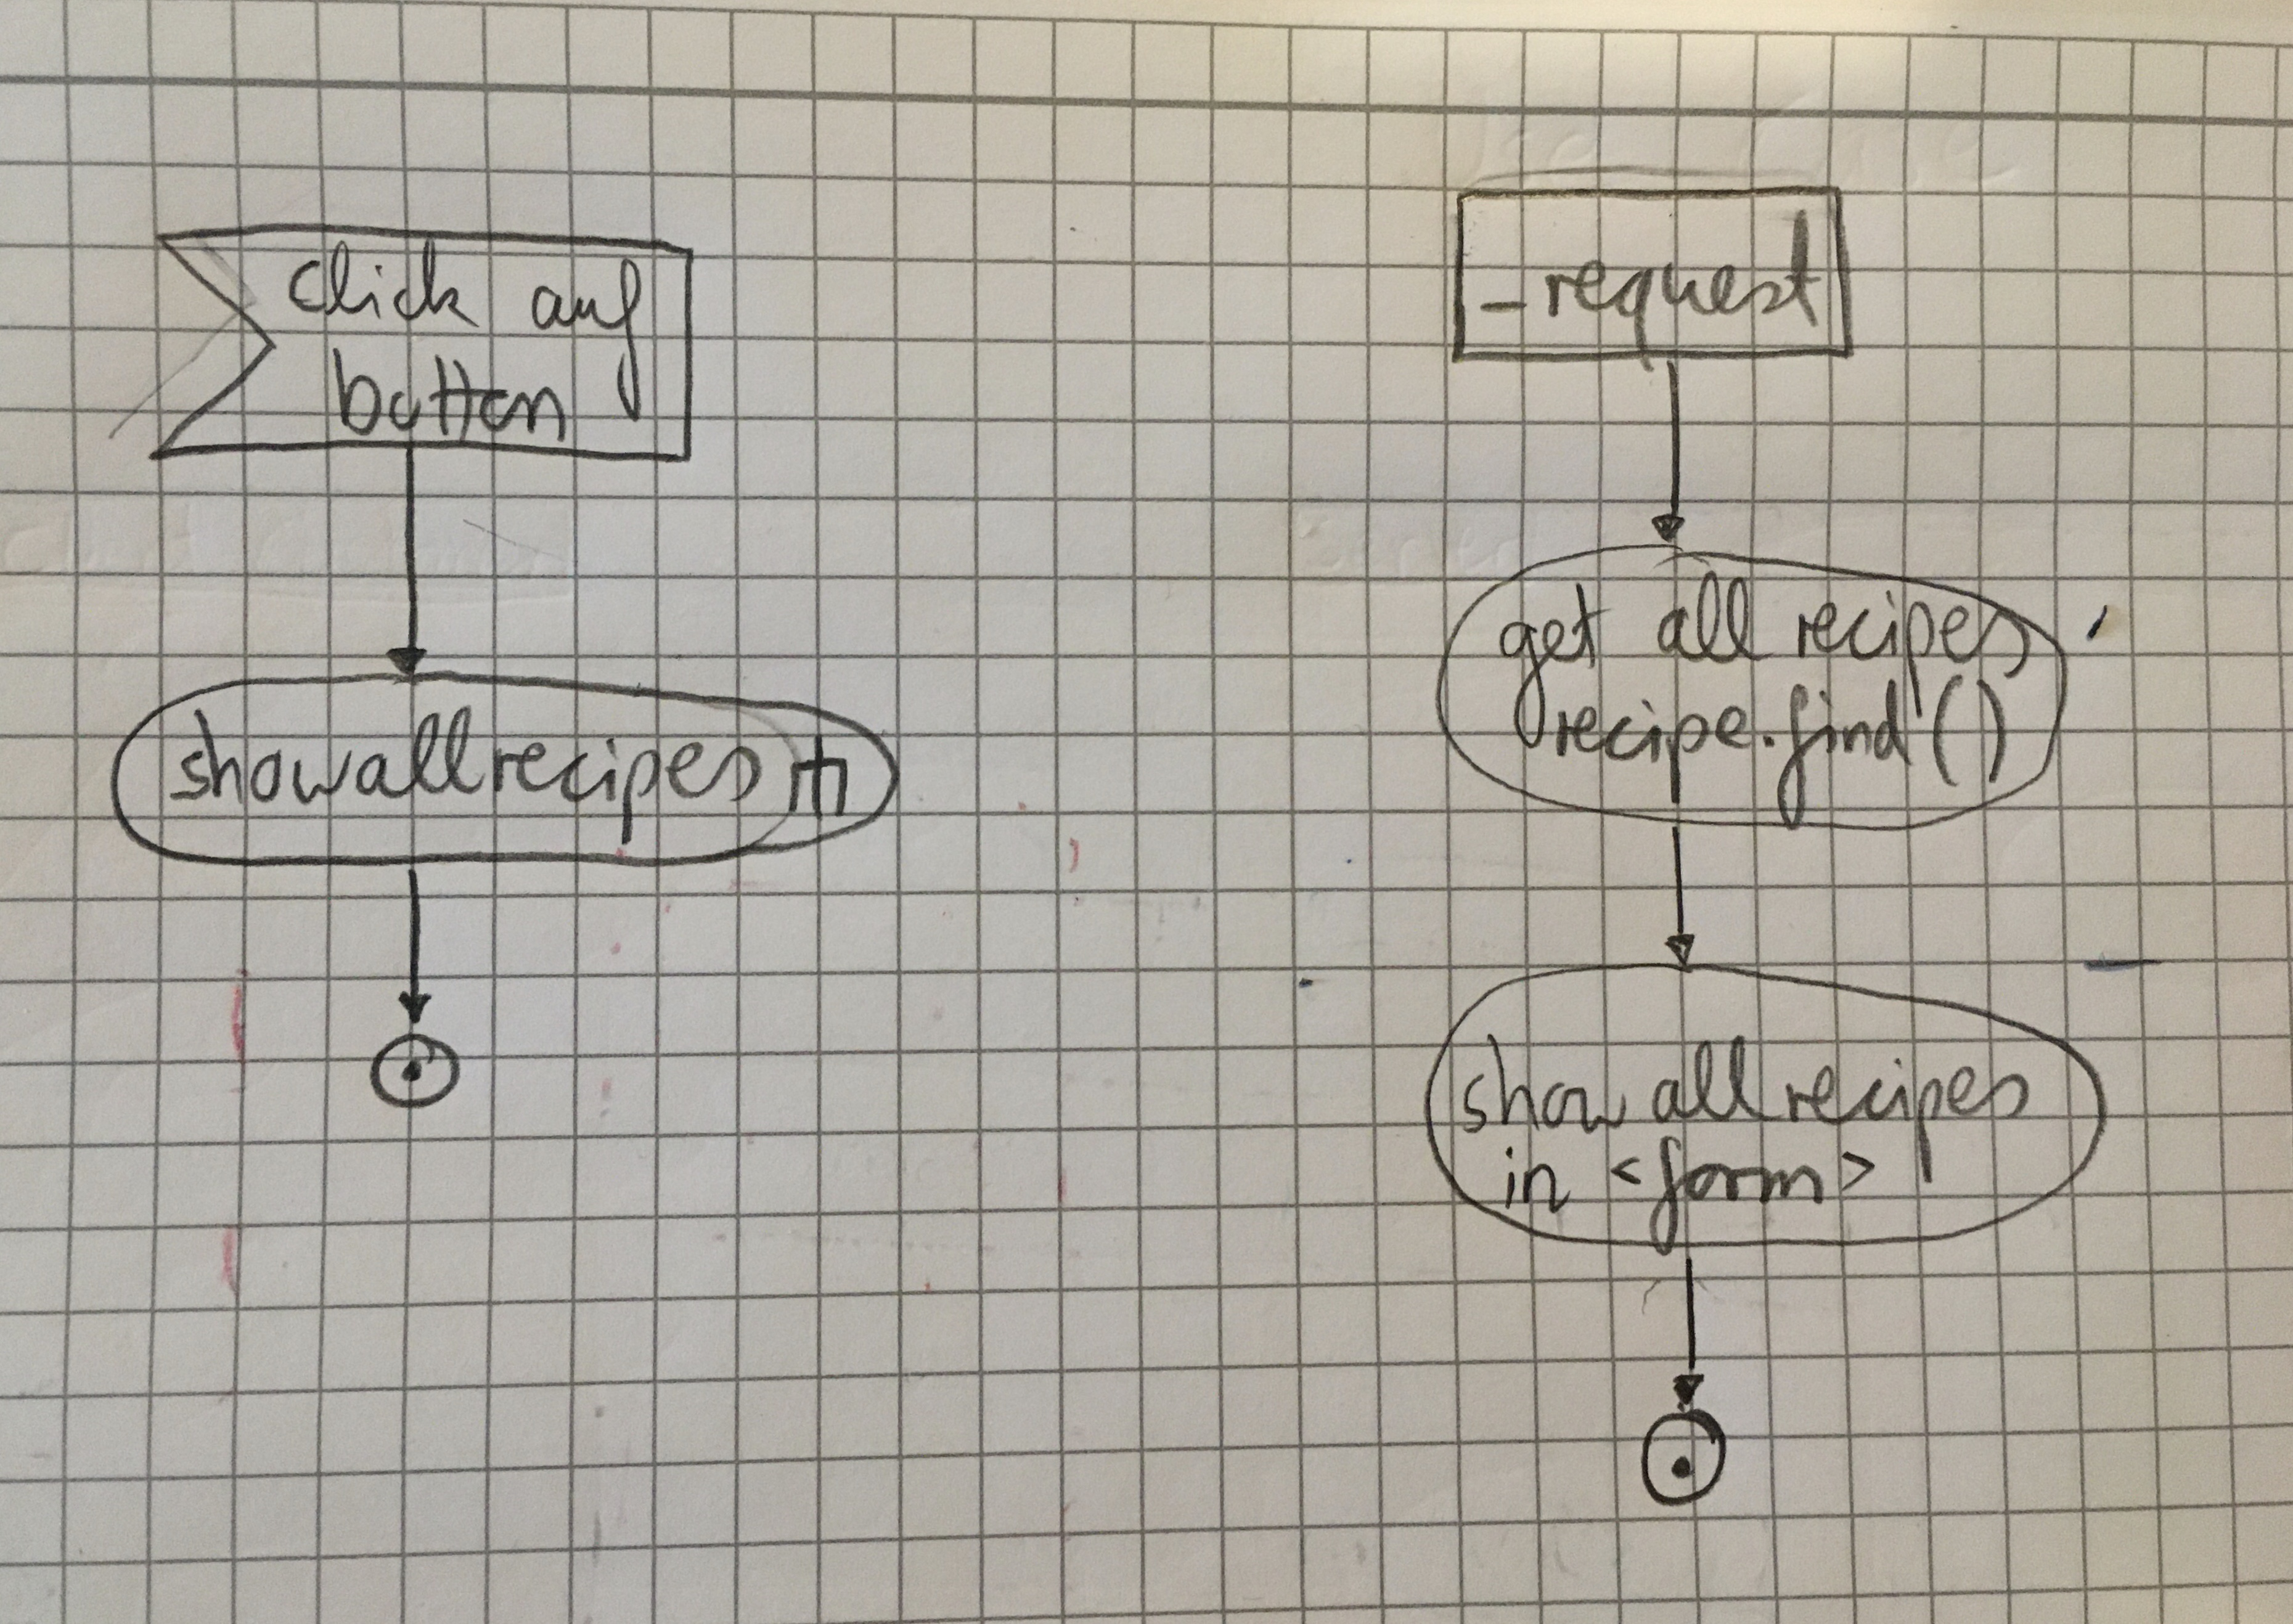 click auf
button
showallrecipes
_request
get all recipes
recipe.find()
show all recipes
in <form>